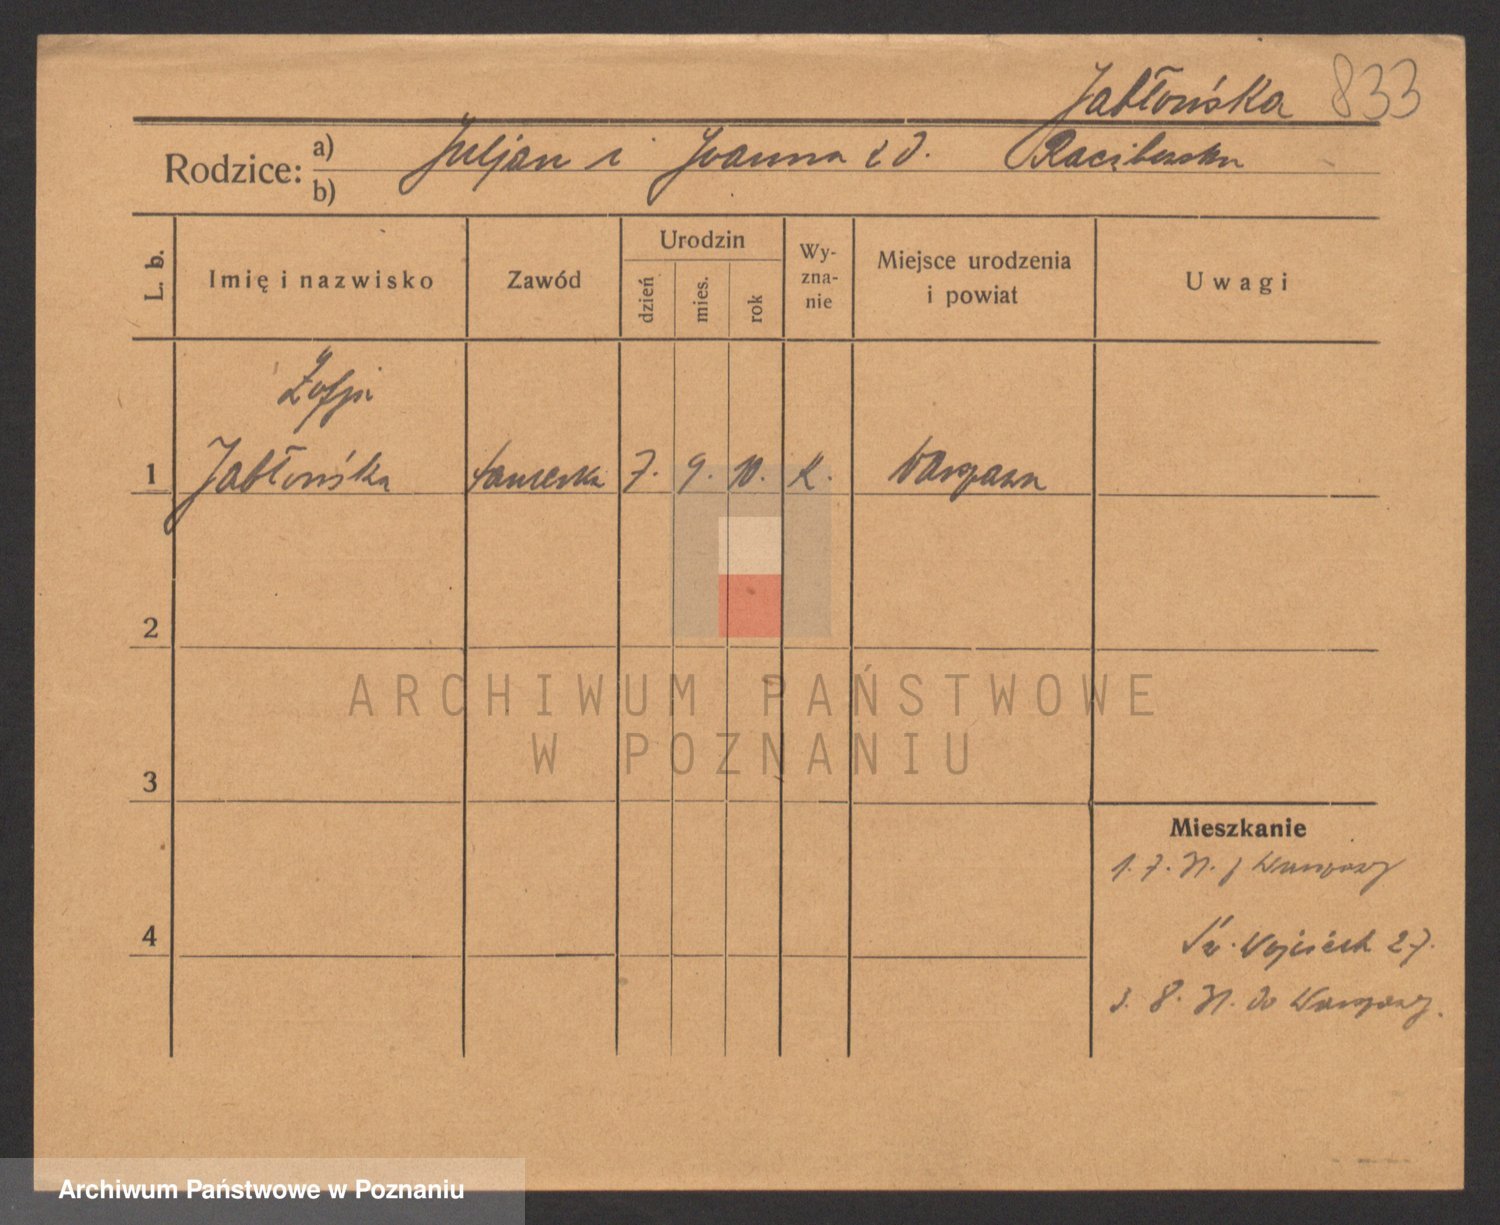 Jabłońska 833
Rodzice: a) Juljan i Joanna z d. Raciborska
b)
L. b.
Imię i nazwisko
Zawód
Urodzin
dzień
mies.
rok
Wy-
zna-
nie
Miejsce urodzenia
i powiat
Uwagi
Zofja
1 Jabłońska tancerka 7. 9. 10. k. Warszawa
2
3
4
ARCHIWUM PAŃSTWOWE
W POZNANIU
Mieszkanie
1. 7. z Warszawy
Św. Wojciech 27.
3. 8. do Warszawy.
Archiwum Państwowe w Poznaniu